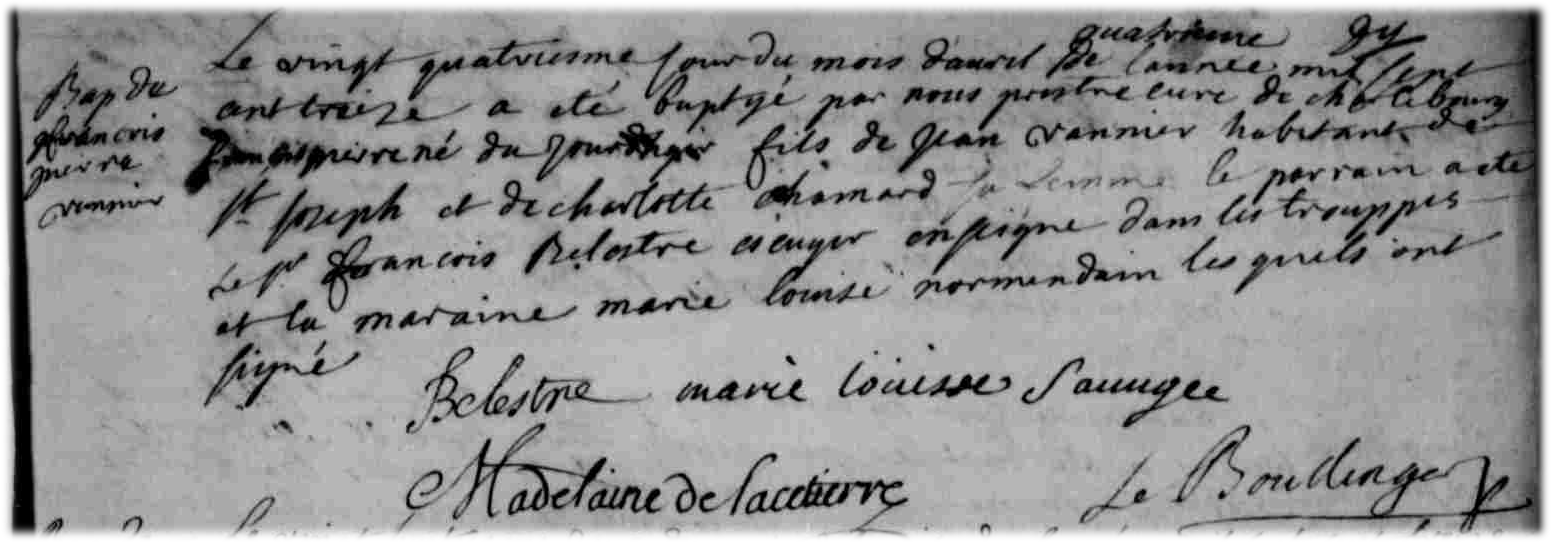 Bap de
francois
pierre
vannier
quatriesme gy
Le vingt quatriesme jour du mois dauril de lannée mil sept
ant traize a eté baptizé par nous prestre curé de charlebourg
francois pierre né du jour fils de jean vannier habitant de
St joseph et de charlotte chamard sa femme le parrain a eté
le sr francois Belestre escuyer enseigne dans les trouppes
et la maraine marie louise normendain les quels ont
signé
Belestre marie loüisse Sauugee
Madelaine de Lacetierre Le Boullenger